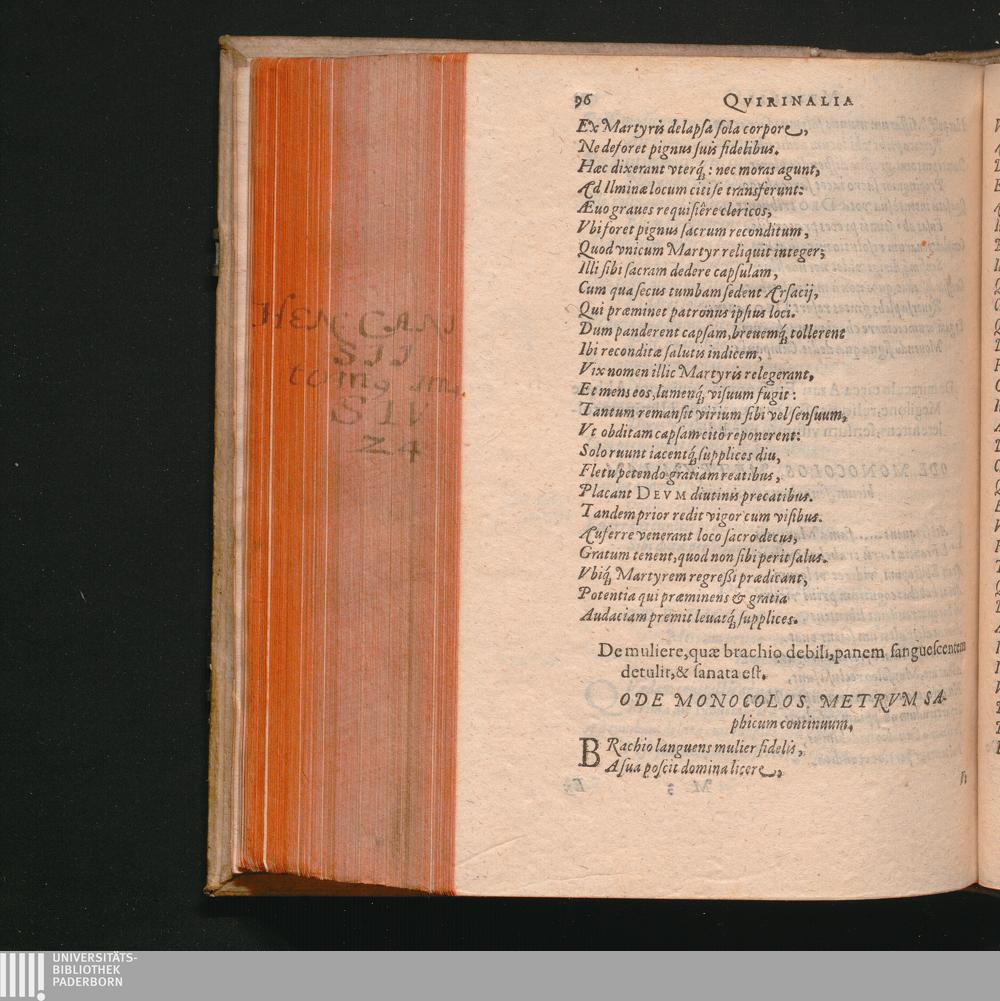 96 QVIRINALIA
Ex Martyris delapsa sola corpore,
Ne deforet pignus suis fidelibus.
Hæc dixerant vterq́; : nec moras agunt,
Ad Ilminæ locum citi se transferunt:
Æuo graues requisiêre clericos,
Vbi foret pignus sacrum reconditum,
Quod vnicum Martyr reliquit integer;
Illi sibi sacram dedere capsulam,
Cum qua secus tumbam sedent Arsacij,
Qui præminet patronus ipsius loci.
Dum panderent capsam, breuemq́; tollerent
Ibi reconditæ salutis indicem,
Vix nomen illic Martyris relegerant,
Et mens eos, lumenq́; visuum fugit:
Tantum remansit virium sibi vel sensuum,
Vt obditam capsam citò reponerent:
Solo ruunt iacentq́; supplices diu,
Fletu petendo gratiam reatibus,
Placant DEVM diutinis precatibus.
Tandem prior redit vigor cum visibus.
Auferre venerant loco sacro decus,
Gratum tenent, quod non sibi perit salus.
Vbiq́; Martyrem regreßi prædicant,
Potentia qui præminens & gratia
Audaciam premit leuatq́; supplices.
De muliere, quæ brachio debili, panem sanguescentem
detulit, & sanata est.
ODE MONOCOLOS, METRVM SA-
phicum continuum.
BRachio languens mulier fidelis,
A sua poscit domina licere,
HEN CANI
SII
S IV
24
UNIVERSITÄTS-
BIBLIOTHEK
PADERBORN